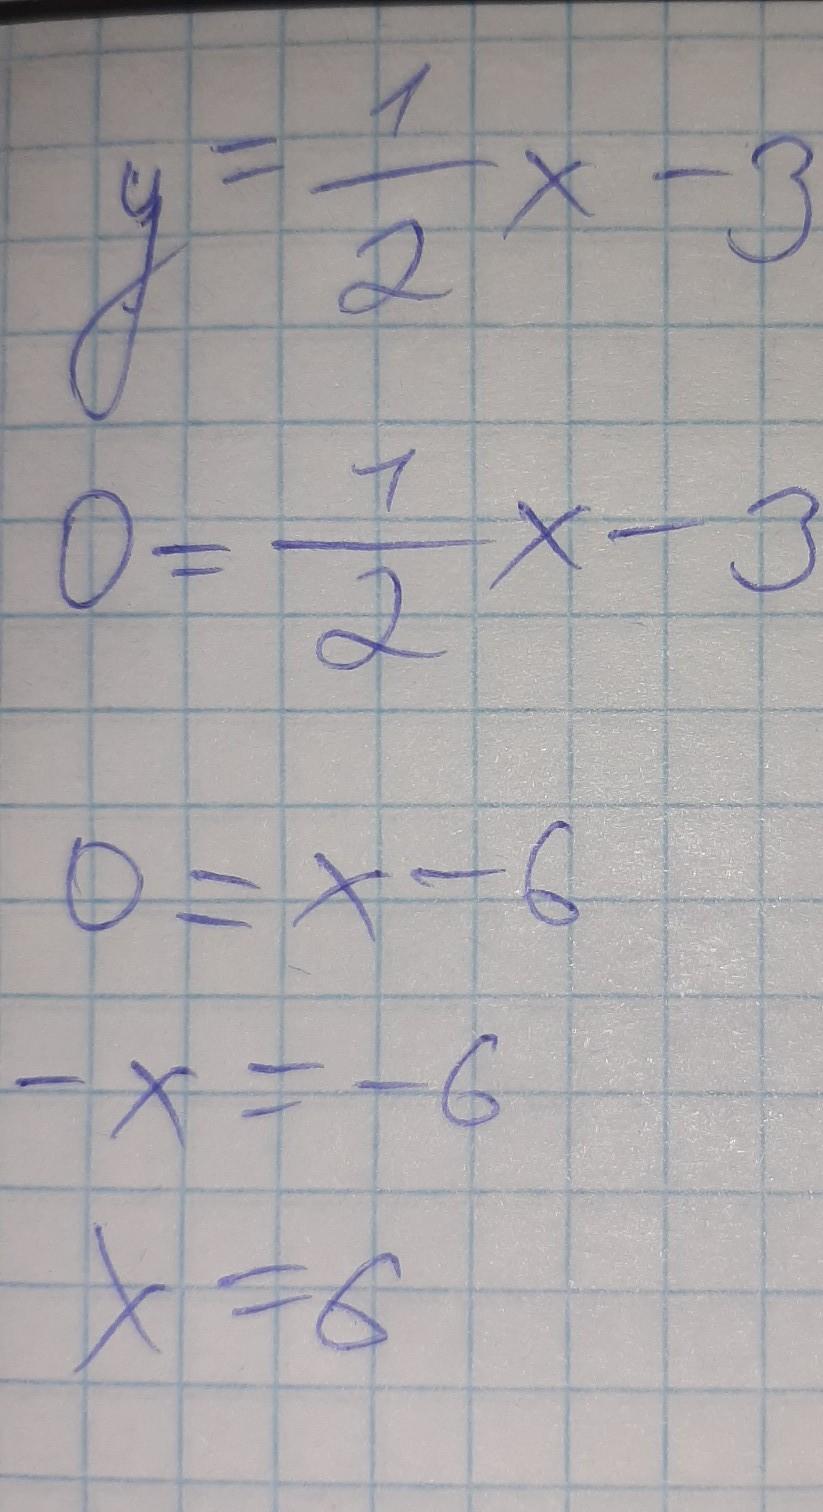 y = 1/2 x - 3
0 = 1/2 x - 3
0 = x - 6
- x = - 6
x = 6